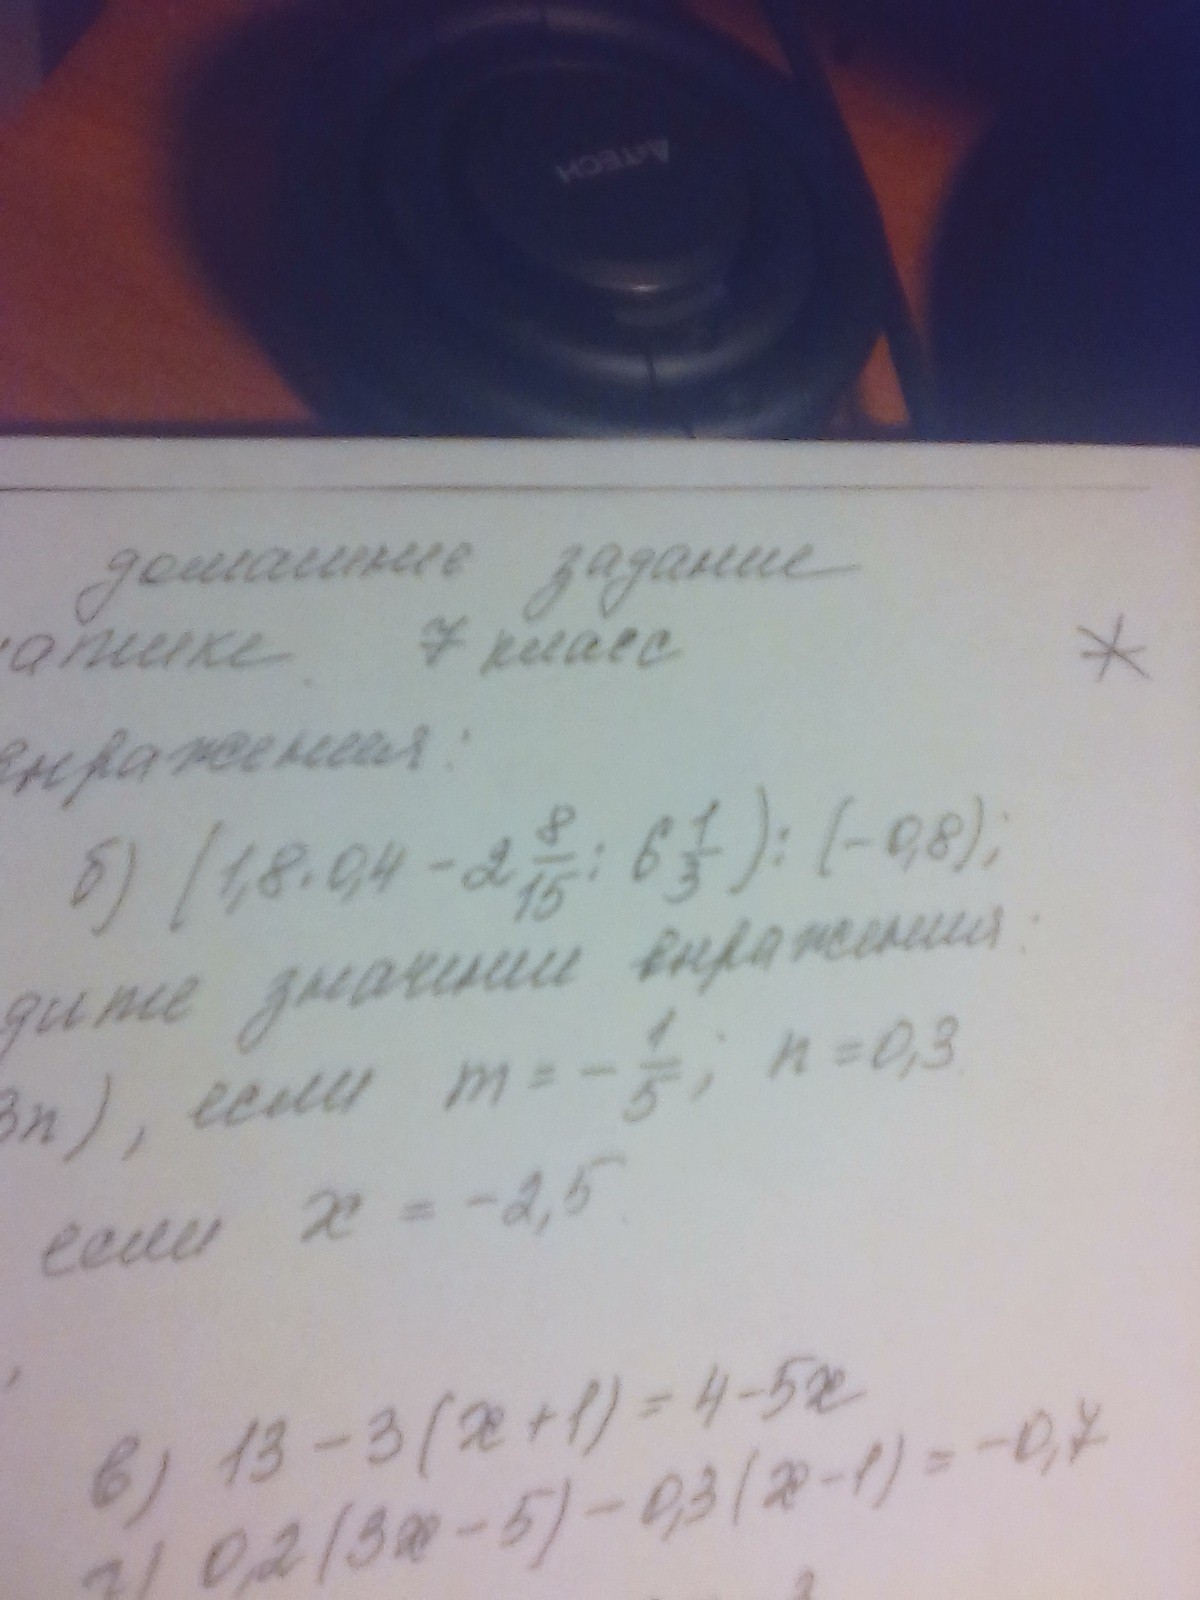 A4TECH
домашнее задание
7 класс
*
выражения:
б) (1,8·0,4 - 2 8/15 : 6 1/3) : (-0,8);
значении выражения:
3n), если m = - 1/5; n = 0,3.
если x = -2,5.
в) 13 - 3(x+1) = 4 - 5x
г) 0,2(3x-5) - 0,3(x-1) = -0,7